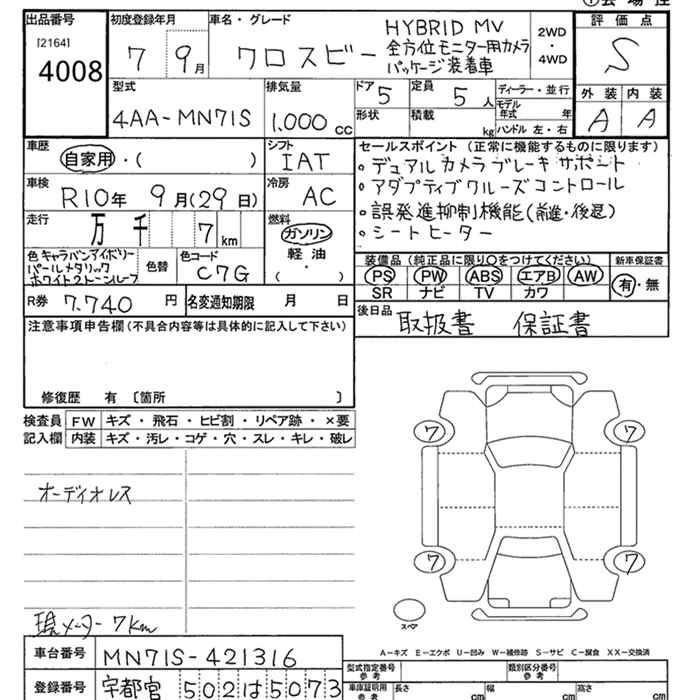 出品番号
[2164]
4008
初度登録年月
7 9月
車名・グレード
クロスビー
HYBRID MV
全方位モニター用カメラ
パッケージ装着車
2WD
・
4WD
評価点
S
外装 内装
A A
型式
4AA-MN71S
排気量
1,000 cc
ドア
5
定員
5人
形状
積載
kg
ディーラー・並行
モデル
年式 年
ハンドル 左・右
車歴
自家用・( )
シフト
IAT
車検
R10年 9月(29日)
冷房
AC
走行
万 千 7km
燃料
ガソリン
軽油
・
( )
色 キャラバンアイボリー
パールメタリック
ホワイト2トーンルーフ
色替
色コード
C7G
R券 7,740 円
名変通知期限 月 日
セールスポイント (正常に機能するものに限ります)
。デュアルカメラブレーキサポート
。アダプティブクルーズコントロール
。誤発進抑制機能(前進・後退)
。シートヒーター
装備品 (純正品に限り○をつけてください)
新車保証書
PS PW ABS エアB AW
SR ナビ TV カワ
有・無
後日品
取扱書 保証書
注意事項申告欄(不具合内容等は具体的に記入して下さい)
修復歴 有 〔箇所 〕
検査員
記入欄
FW キズ・飛石・ヒビ割・リペア跡・×要
内装 キズ・汚レ・コゲ・穴・スレ・キレ・破レ
オーディオレス
現メーター 7km
7
7
7
7
スペア
A-キズ E-エクボ U-凹み W-補修跡 S-サビ C-腐食 XX-交換済
車台番号
MN71S-421316
登録番号
宇都宮 502 は 5073
型式指定番号
参考
類別区分番号
参考
車庫証明用
参考
長さ cm
幅 cm
高さ cm